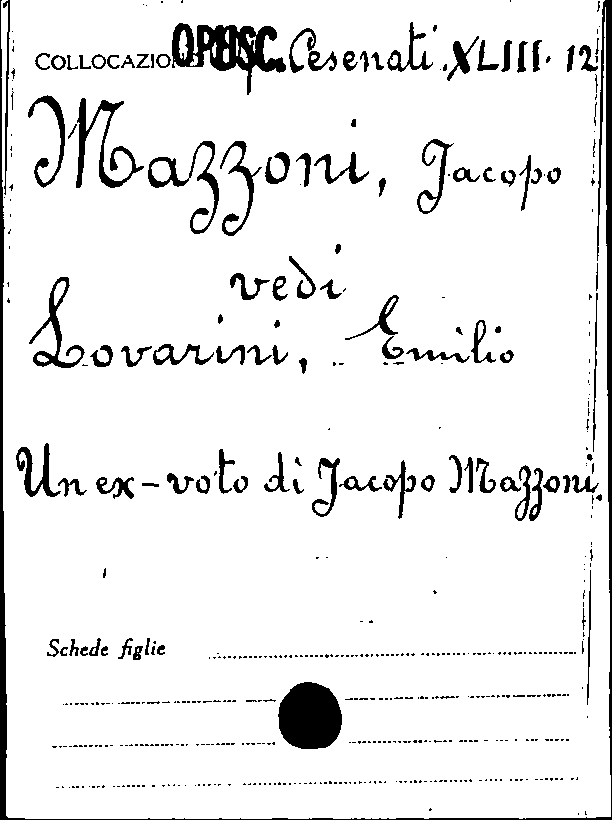 COLLOCAZIONE OPUSC. Cesenati. XLIII. 12
Mazzoni, Jacopo
vedi
Lovarini, Emilio
Un ex-voto di Jacopo Mazzoni.
Schede figlie